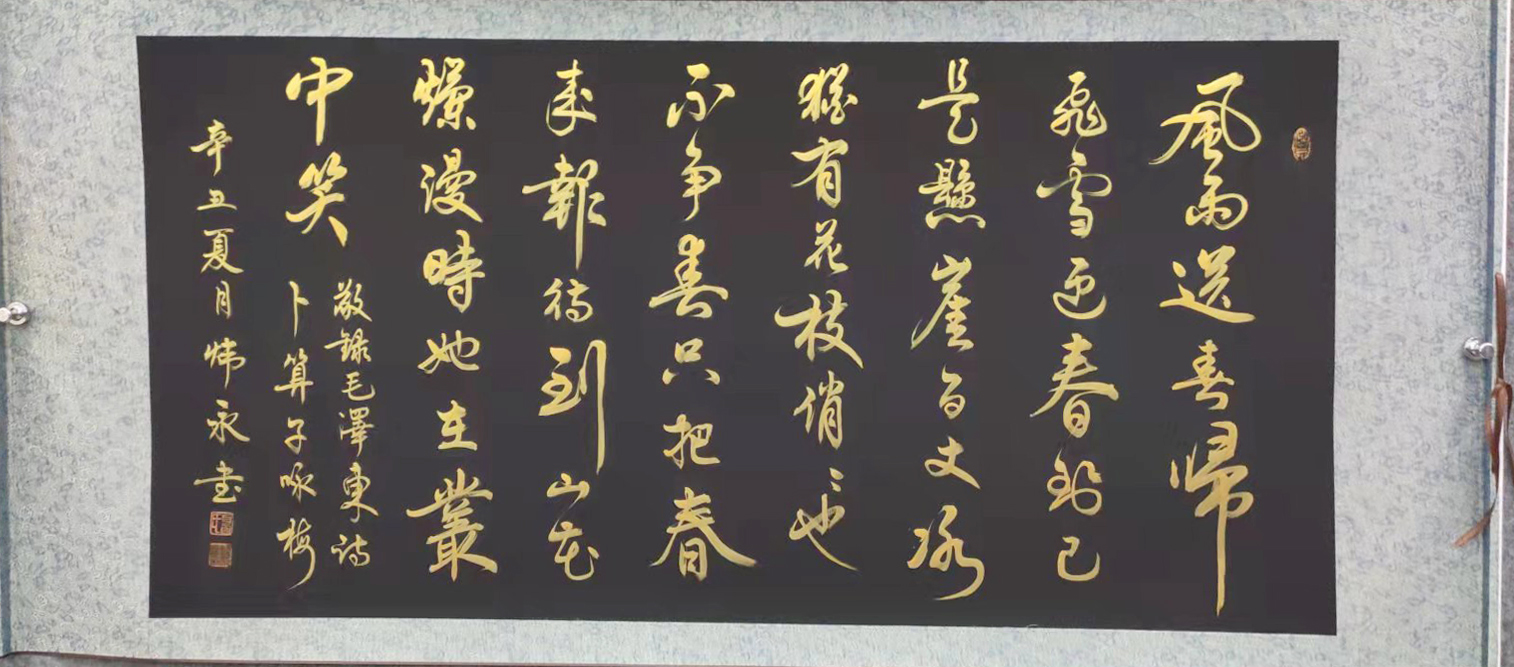 風雨送春帰
飛雪迎春到已
是懸崖百丈冰
猶有花枝俏〻也
不争春只把春
来報待到山花
爛漫時她在叢
中笑
敬録毛澤東詩
卜算子咏梅
辛丑夏月煒永書